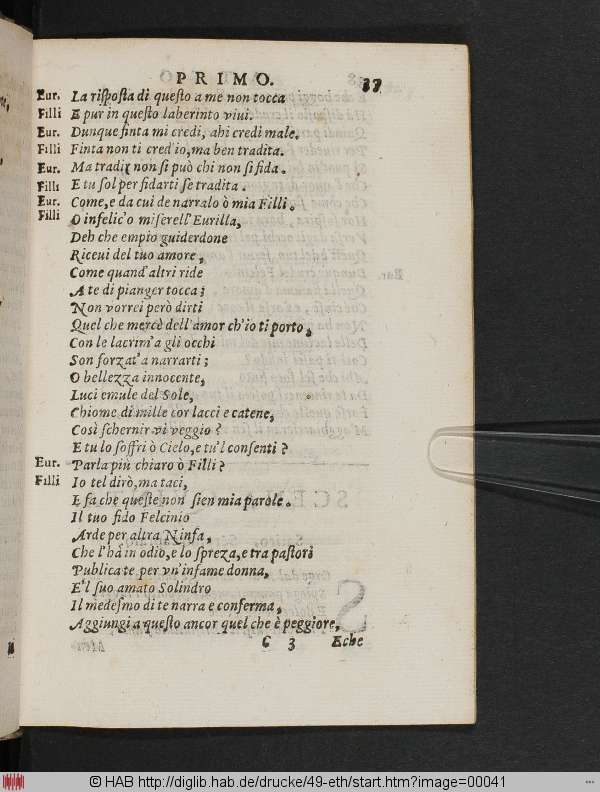 PRIMO. 37
Eur. La risposta di questo a me non tocca
Filli E pur in questo laberinto viui.
Eur. Dunque finta mi credi, ahi credi male.
Filli Finta non ti cred'io, ma ben tradita.
Eur. Ma tradir non si può chi non si fida.
Filli E tu sol per fidarti se tradita.
Eur. Come, e da cui de narralo ò mia Filli.
Filli O infelic'o miserell' Eurilla,
Deh che empio guiderdone
Riceui del tuo amore,
Come quand'altri ride
A te di pianger tocca;
Non vorrei però dirti
Quel che mercè dell'amor ch'io ti porto,
Con le lacrim'a gli occhi
Son forzat'a narrarti;
O bellezza innocente,
Luci emule del Sole,
Chiome di mille cor lacci e catene,
Così schernir vi veggio?
E tu lo soffri ò Cielo, e tu'l consenti?
Eur. Parla più chiaro ò Filli?
Filli Io tel dirò, ma taci,
E fa che queste non sien mia parole.
Il tuo fido Felcinio
Arde per altra Ninfa,
Che l'hà in odio, e lo spreza, e tra pastori
Publicate per vn'infame donna,
E'l suo amato Solindro
Il medesmo di te narra e conferma,
Aggiungi a questo ancor quel che è peggiore,
C 3 Eche
© HAB http://diglib.hab.de/drucke/49-eth/start.htm?image=00041